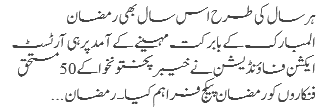 ہر سال کی طرح اس سال بھی رمضان
المبارک کے بابرکت مہینے کے آمد پر ہی آرٹسٹ
ایکشن فاؤنڈیشن نے خیبر پختونخوا کے 50 مستحق
فنکاروں کو رمضان پیکج فراہم کیا۔ رمضان...